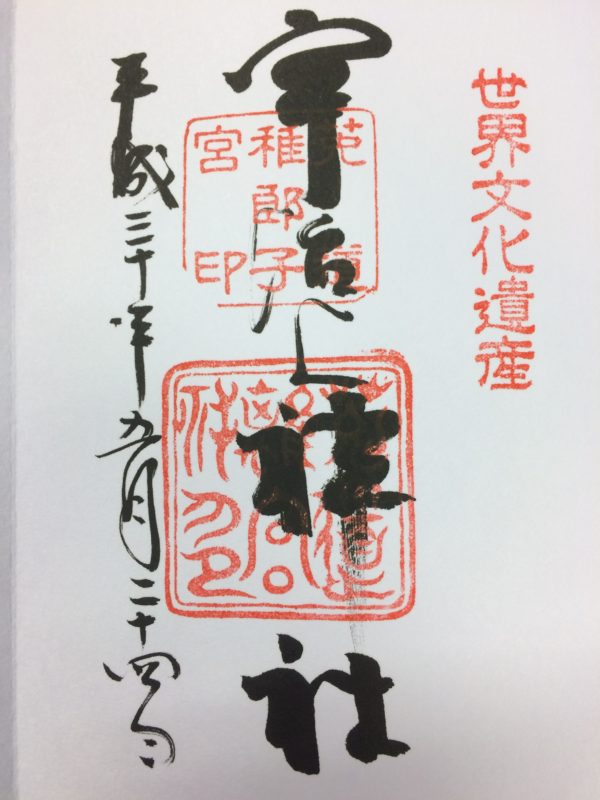 世界文化遺産
宇治上神社
菟道
稚郎子
宮印
平成三十年五月二十四日